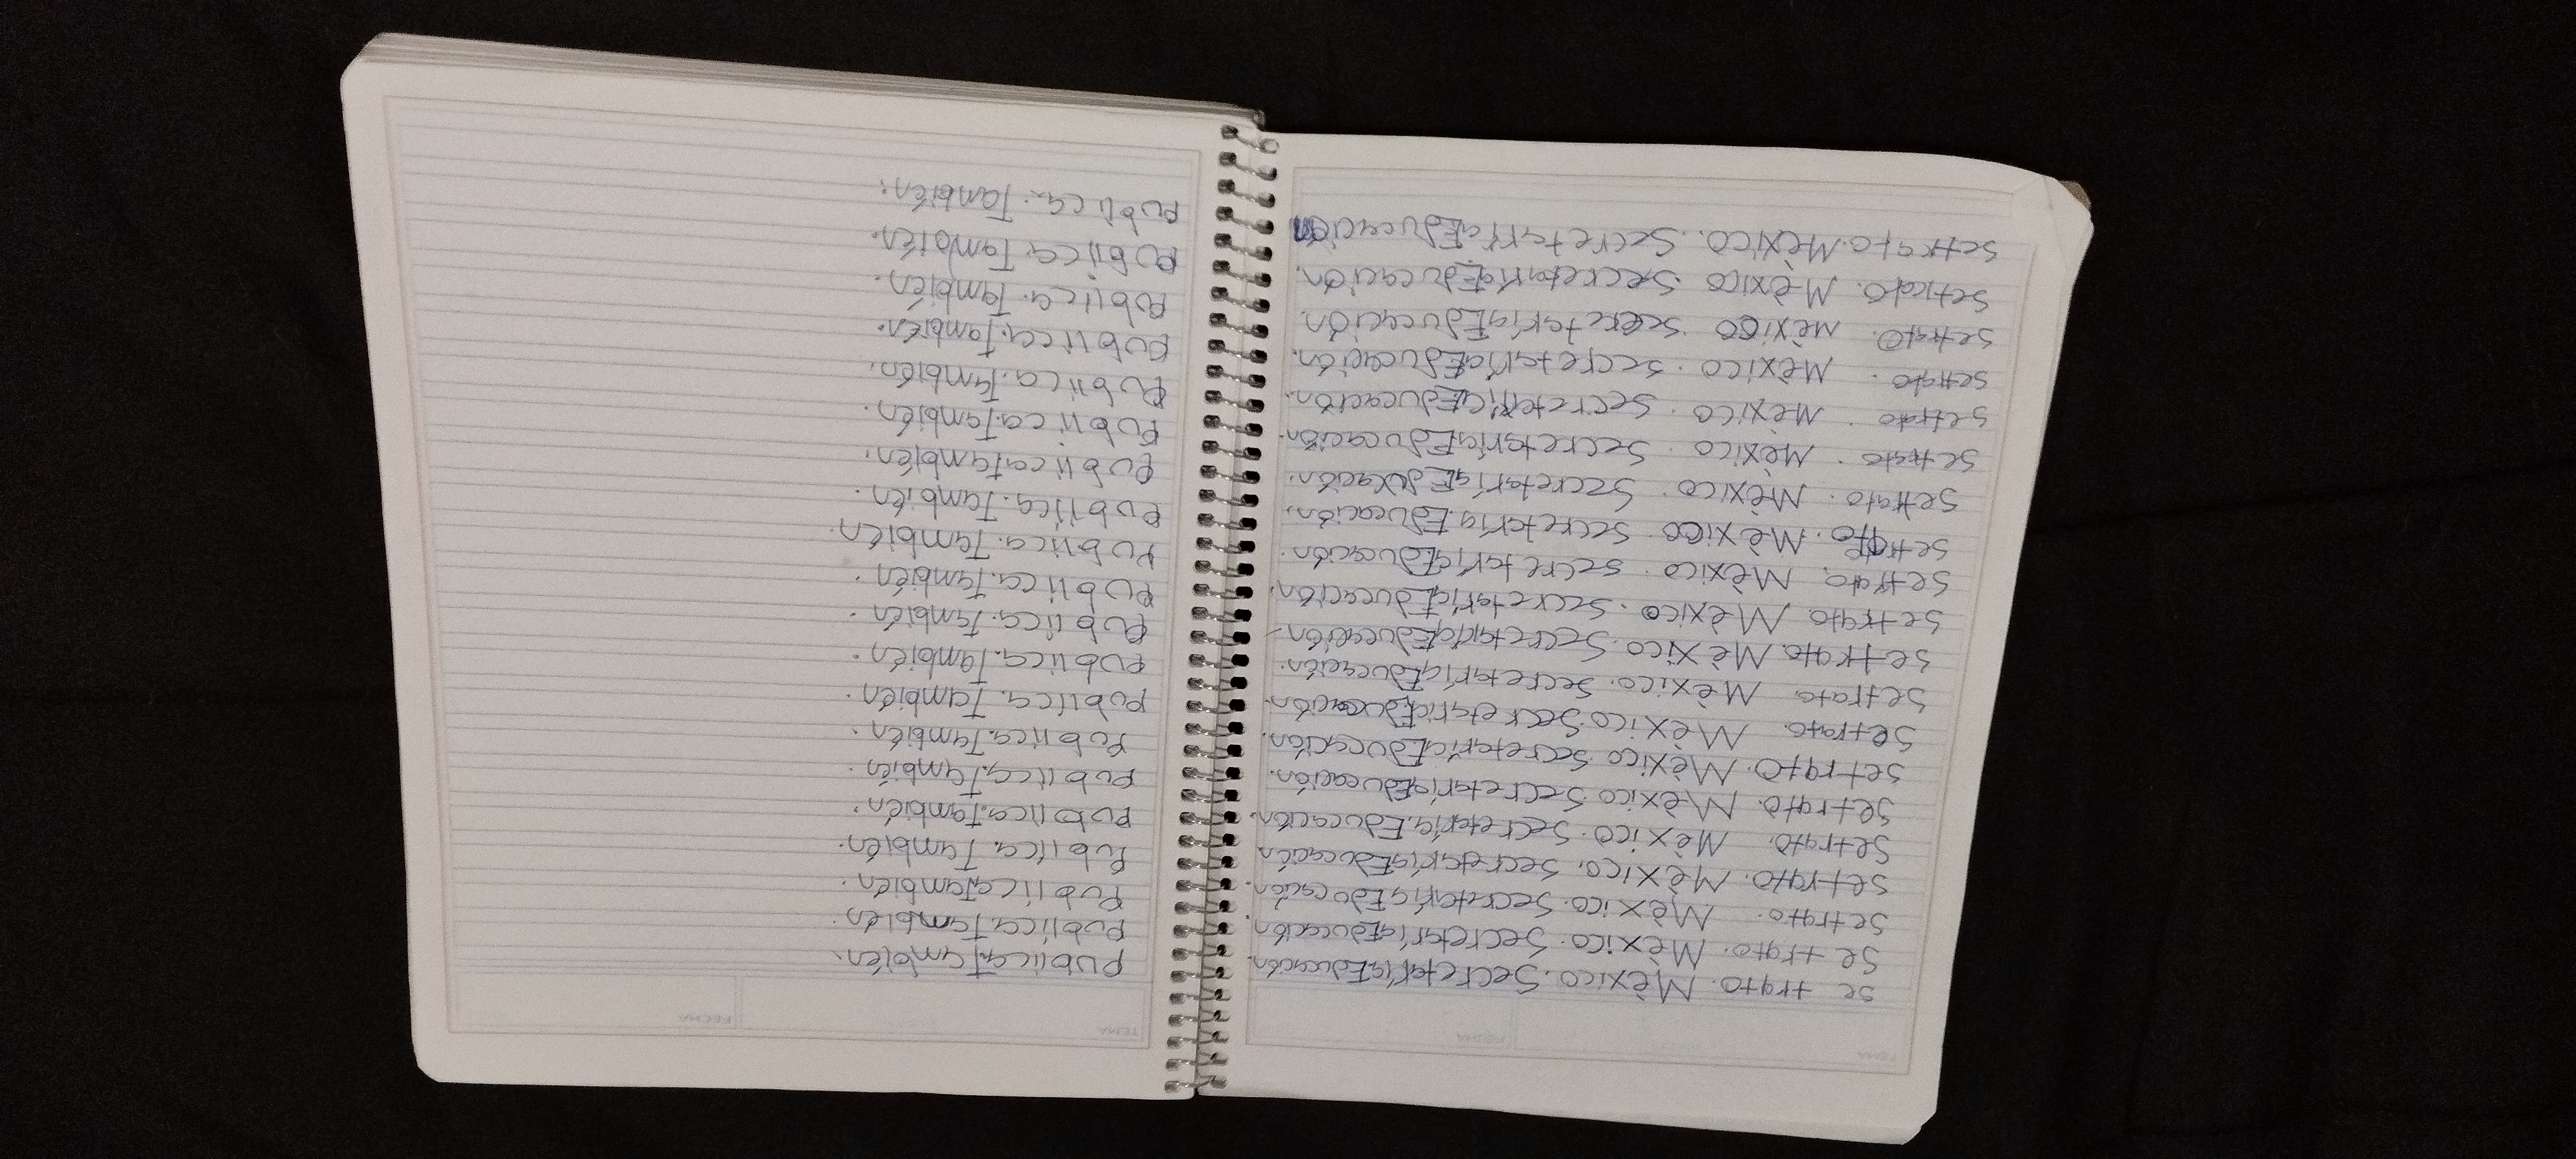 TEMA FECHA
se trato. Mèxico. Secretaría Educación.
Se trato. Mèxico. Secretaría Educación
setrato. Mèxico. Secretaría Educación
setrato. Mèxico. Secretaría Educación
setrato. Mèxico. Secretaría. Educación.
setrato. Mèxico Secretaría Educación.
setrato. Mèxico Secretaría Educación.
setrato. Mèxico. Secretaría Educación
setrato. Mèxico. Secretaría Educación.
setrato. Mèxico. Secretaría Educación
setrato. Mèxico. Secretaría Educación.
setrato. Mèxico. secretaría Educación.
setrato. Mèxico. Secretaría. Educación.
setrato. Mèxico. Secretaría Educación.
setrato. Mèxico. Secretaría Educación.
setrato. Mèxico. Secretaría Educación.
setrato. Mèxico. secretaría Educación.
setrato. Mèxico. secretaría Educación.
setrato. Mèxico. Secretaría Educación.
setrato. Mèxico. Secretaría Educación
TEMA FECHA
Publica También.
Publica. También.
Publica. También.
Publica. También.
Publica. También.
Publica. También.
Publica. También.
Publica. También.
Publica. También.
Publica. También.
Publica. También.
Publica. También.
Publica. También.
Publica. También.
Publica. También.
Publica. También.
Publica. También.
Publica. También.
Publica. También.
Publica. También.